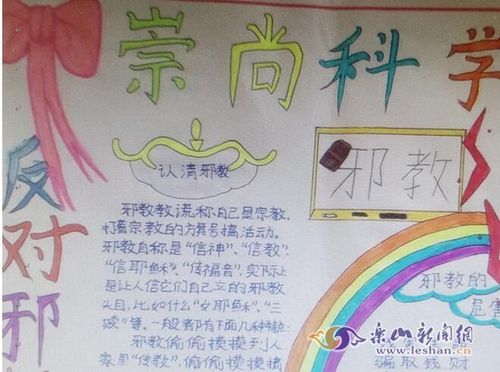 崇尚科学
反对邪
认清邪教
邪教
邪教教谎称自己是宗教,
打着宗教的方舞号搞活动。
邪教自称是“信神”、“信教”、
“信耶稣”、“传福音”,实际上
是让人信它们自己立的邪教
头目,比如什么“女耶稣”、“三
等。一般都有下面几种特征:
邪教偷偷摸摸到人
家里“传教”,偷偷摸摸搞
邪教的
危害
骗取钱财
乐山新闻网
www.leshan.cn